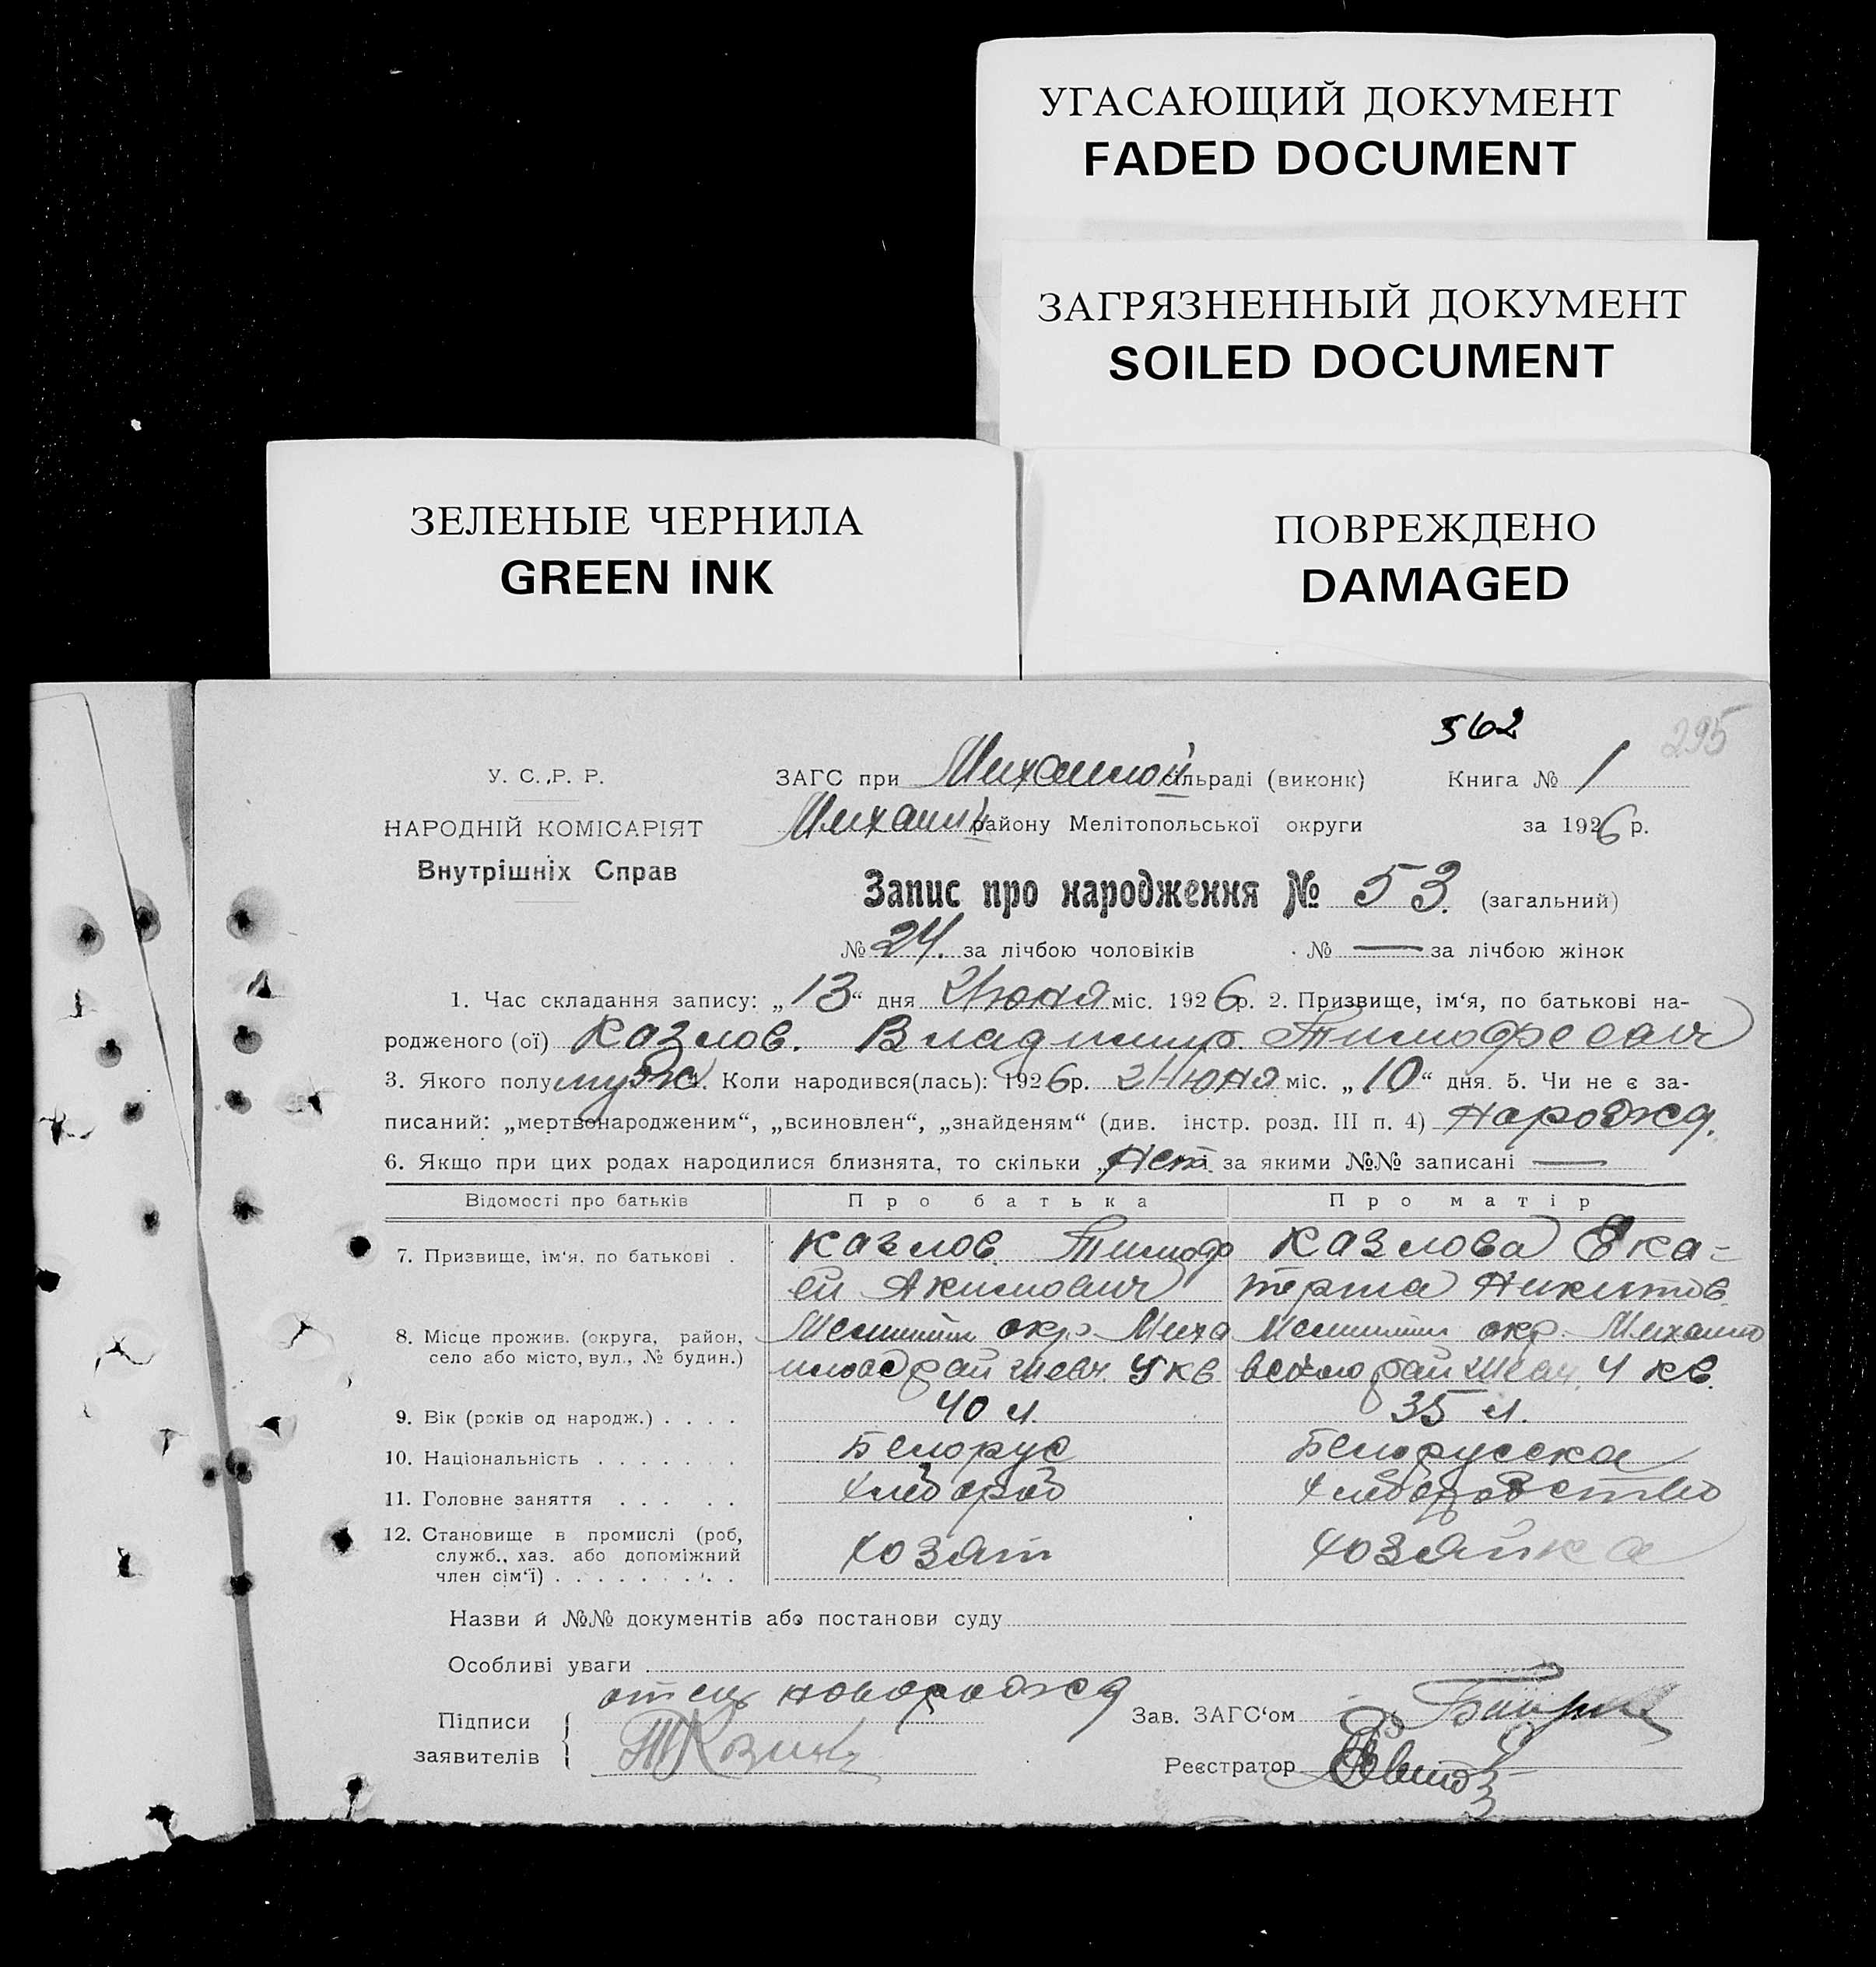 УГАСАЮЩИЙ ДОКУМЕНТ
FADED DOCUMENT
ЗАГРЯЗНЕННЫЙ ДОКУМЕНТ
SOILED DOCUMENT
ЗЕЛЕНЫЕ ЧЕРНИЛА
GREEN INK
ПОВРЕЖДЕНО
DAMAGED
562 295
У. С. Р. Р.
ЗАГС при сільраді (виконк) Книга № 1
НАРОДНІЙ КОМІСАРІЯТ
району Мелітопольської округи за 1926 р.
Внутрішніх Справ
Запис про народження № 53. (загальний)
№ 24. за лічбою чоловіків № — за лічбою жінок
1. Час складання запису: „13“ дня Июня міс. 1926 р. 2. Призвище, ім‘я, по батькові на-
родженого (ої) Казлов. Владимир. Тимофеевич
3. Якого полу муж. 4. Коли народився(лась): 1926 р. Июня міс. „10“ дня. 5. Чи не є за-
писаний: „мертвонародженим“, „всиновлен“, „знайденям“ (див. інстр. розд. III п. 4) Нарожд.
6. Якщо при цих родах народилися близнята, то скільки „Нет. за якими №№ записані —
Відомості про батьків Про батька Про матір
7. Призвище, ім‘я, по батькові . Казлов. Тимоф Казлова Ека=
ей Акимович терина Никитов.
8. Місце прожив. (округа, район, окр. Миха окр. Михайло
село або місто, вул., № будин.) рай 4 кв. рай 4 кв.
9. Вік (років од народж.) . . . . 40 л. 35 л.
10. Національність . . . . . . . Белорус Белоруска
11. Головне заняття . . . . . хлебороб хлеборобство
12. Становище в промислі (роб, хозяин хозяйка
служб., хаз. або допоміжний
член сім‘ї) . . . . . . . . .
Назви й №№ документів або постанови суду
Особливі уваги
отец новорожд
Підписи
Зав. ЗАГС‘ом
заявителів
Реєстратор